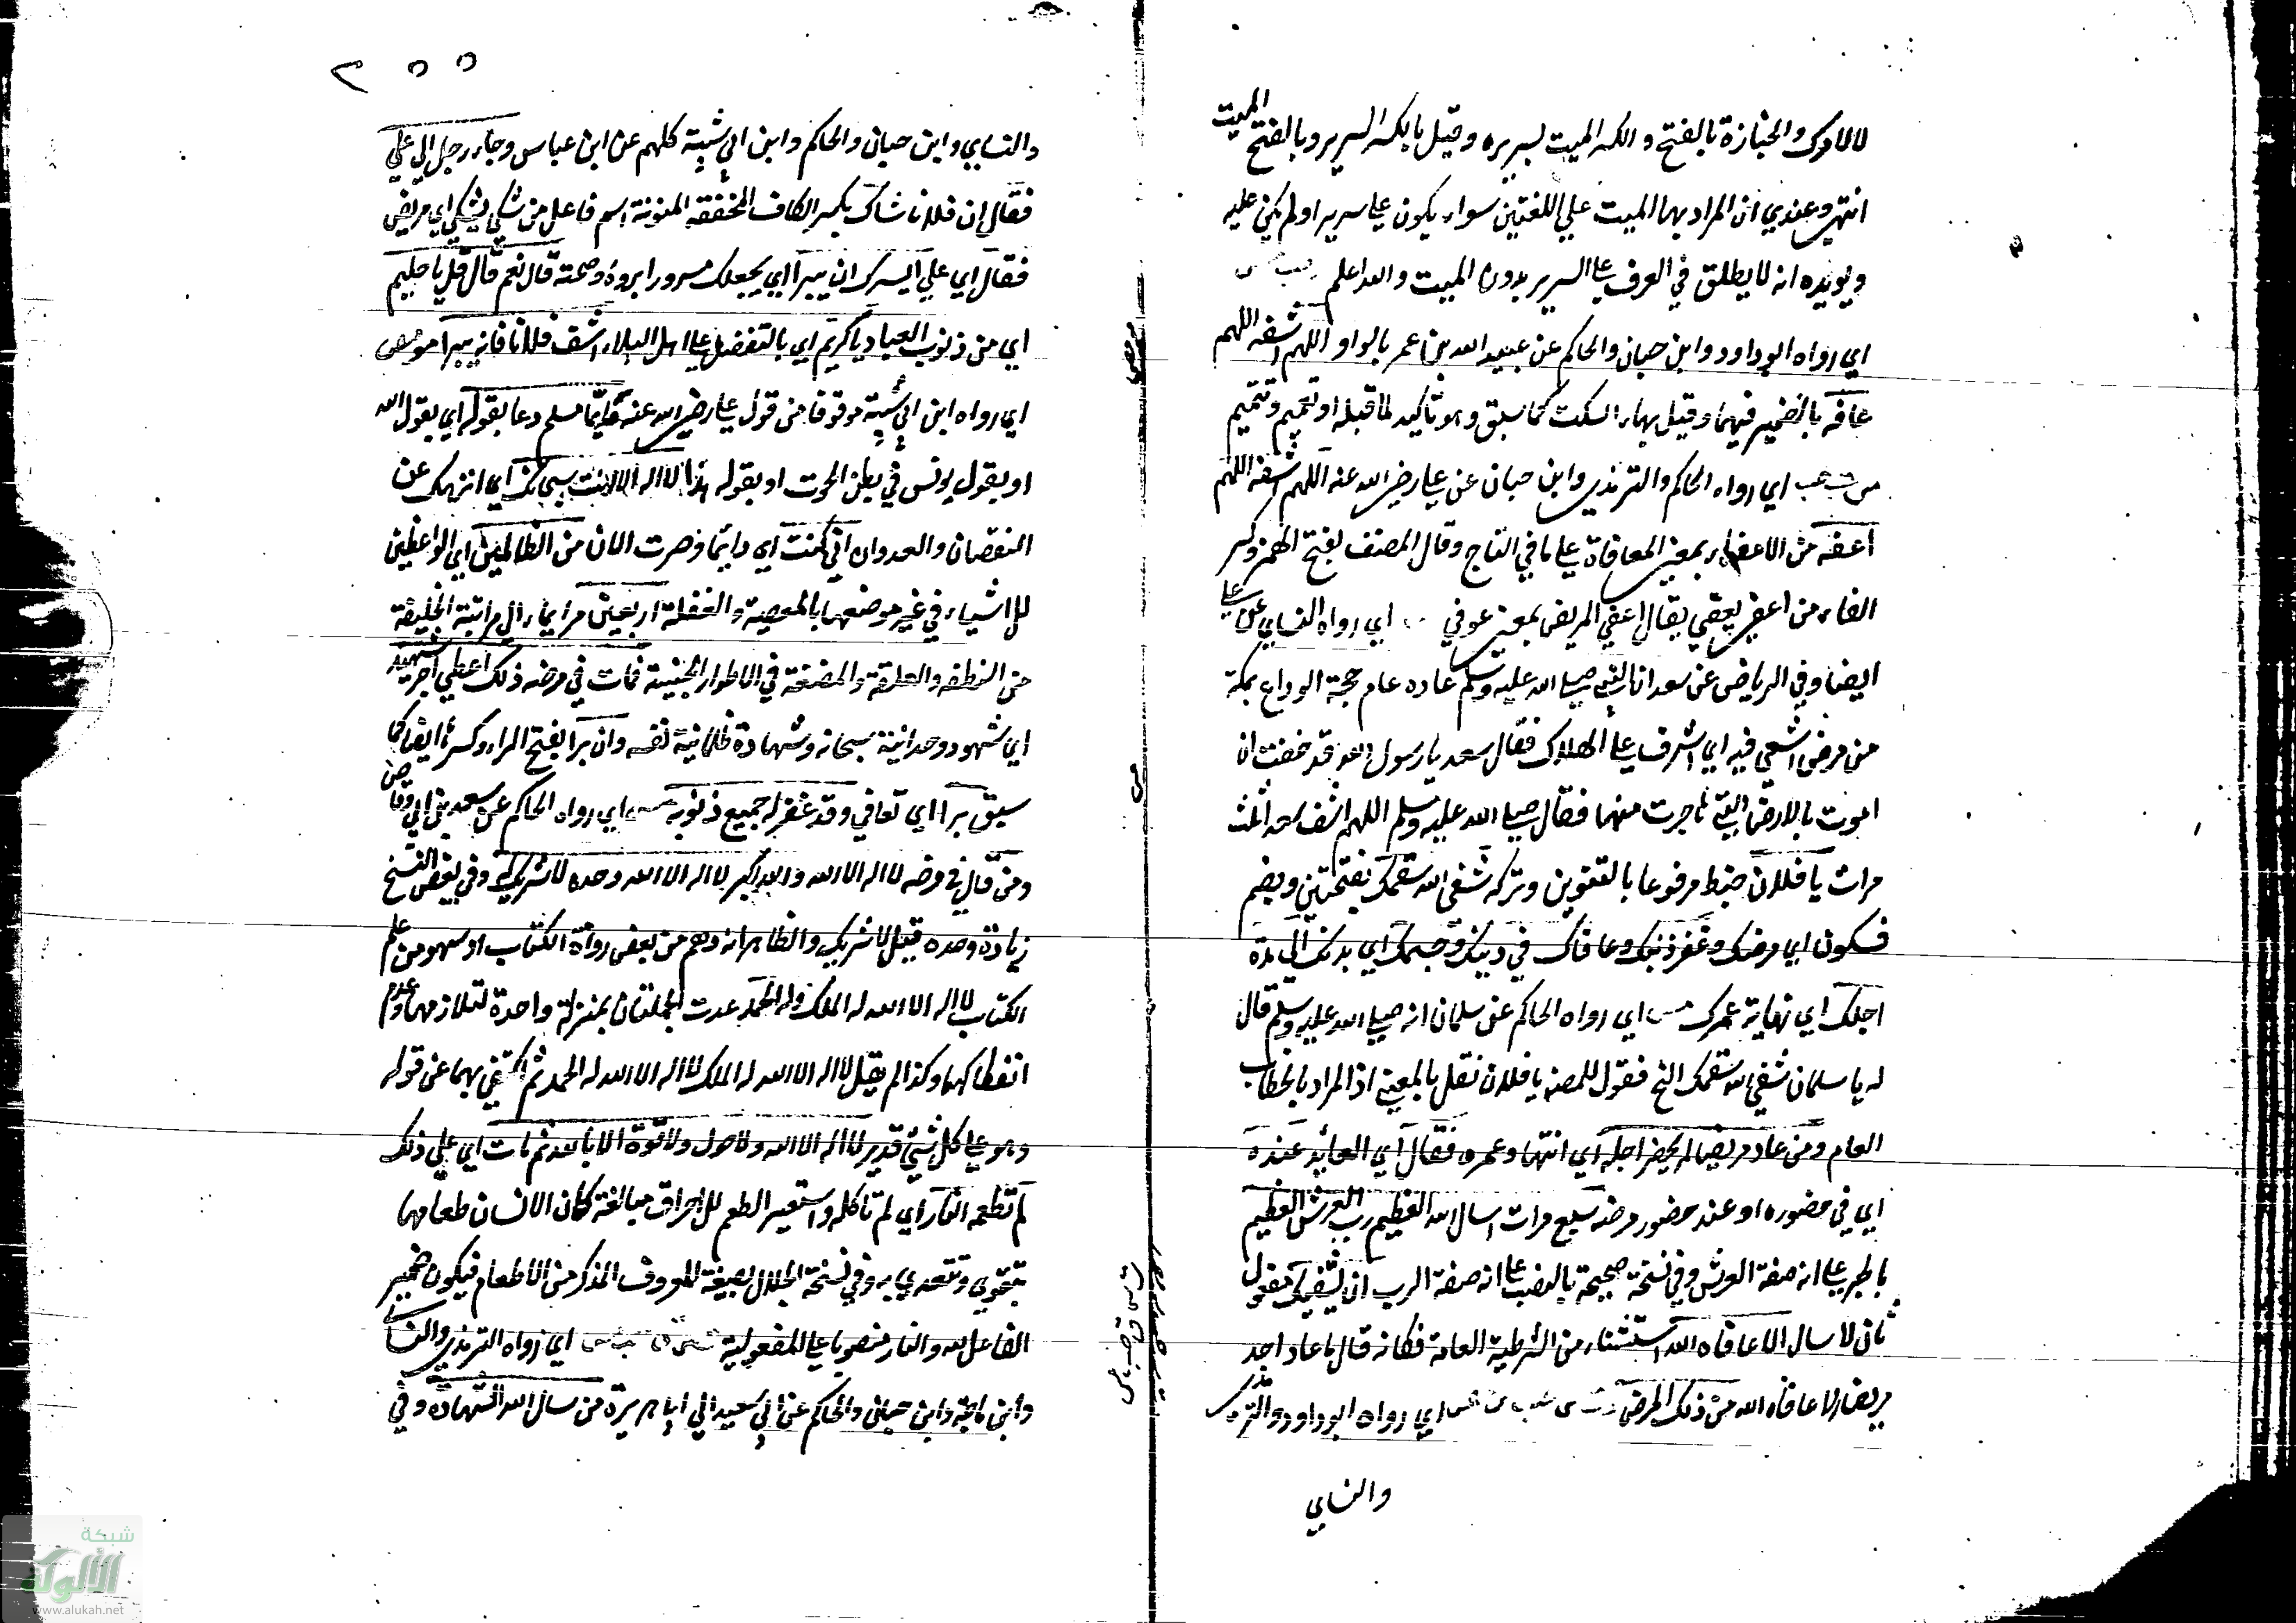 لا للادرك والجنازة بالفتح والكسر الميت لسريره وقيل بالكسر السرير وبالفتح الميت
انتهى وعندي ان المراد بها الميت علي اللغتين سواء يكون علي سرير او لم يكن عليه
ويؤيده انه لا يطلق في العرف علي السرير بدون الميت والله اعلم
اي رواه ابو داود وابن حبان والحاكم عن عبيد الله بن عمر بالواو اللهم اشفه اللهم
عافه بالضمير فيهما وقيل بهاء السكت كما سبق وهو تأكيد لما قبله او تعميم وتتميم
اي رواه الحاكم والترمذي وابن حبان عن علي رضي الله عنه اللهم اشفه اللهم
اعفه من الاعفاء بمعنى المعافاة علي ما في التاج وقال المصنف بفتح الهمز وكسر
الفاء من اعفى يعفي يقال اعفي المريض بمعنى عوفي اي رواه النساي عن علي
ايضا وفي الرياض عن سعد ان النبي صلي الله عليه وسلم عاده عام حجة الوداع بمكة
من مرض اشفي فيه اي اشرف علي الهلاك فقال سعد يا رسول الله قد خفت ان
اموت بالارض التي هاجرت منها فقال صلي الله عليه وسلم اللهم اشف سعدا ثلث
مرات يا فلان ضبط مرفوعا بالتنوين وتركه شفى الله سقمك بفتحتين وبضم
فسكون اي مرضك وغفر ذنبك وعافاك في دينك وجسمك اي بدنك الي مدة
اجلك اي نهاية عمرك مس اي رواه الحاكم عن سلمان انه صلي الله عليه وسلم قال
له يا سلمان شفي الله سقمك الخ فقول المصنف يا فلان نقل بالمعنى اذ المراد بالخطاب
العام ومن عاد مريضا لم يحضر اجله اي انتهاء عمره فقال اي العائد عنده
اي في حضوره او عند حضور مرضه سبع مرات اسال الله العظيم رب العرش العظيم
بالجر علي انه صفة العرش وفي نسخة صحيحة بالنصب علي انه صفة الرب ان يشفيك مفعول
ثان لاسال الا عافاه الله استثناء من الشرطية العامة فكانه قال ما عاد احد
مريضا الا عافاه الله من ذلك المرض اي رواه ابو داود والترمذي
والنساي
٢٥٥
والنساي وابن حبان والحاكم وابن ابي شيبة كلهم عن ابن عباس وجاء رجل الي علي
فقال ان فلانا شاك بكسر الكاف المخففة المنونة اسم فاعل من شكي يشكي اي مريض
فقال اي علي ايسرك ان يبرأ اي يجعلك مسرورا برؤه وصحته قال نعم قال قل يا حليم
اي من ذنوب العباد يا كريم اي بالتفضل علي اهل البلاء اشف فلانا فانه يبرأ مومص
اي رواه ابن ابي شيبة موقوفا من قول علي رضي الله عنه وايما مسلم دعا بقوله اي بقول الله
او بقول يونس في بطن الحوت او بقوله هذا لا اله الا انت سبحانك اي انزهك عن
النقصان والعدوان اني كنت اي دائما وصرت الان من الظالمين اي الواضعين
للاشياء في غير موضعها بالمعصية والغفلة اربعين مرة ايماء الي مراتبة الخليقة
من النطفة والعلقة والمضغة في الاطوار الجنينية فمات في مرضه ذلك اعطي اجر شهيد
اي شهود وحدانيته سبحانه وشهادة ظلمانية نفسه وان برأ بفتح الراء وكسره ايضا كما
سبق برأ اي تعافي وقد غفر له جميع ذنوبه مس اي رواه الحاكم عن سعد بن ابي وقاص
ومن قال في مرضه لا اله الا الله والله اكبر لا اله الا الله وحده لا شريك له وفي بعض النسخ
زيادة وحده قبل لا شريك والظاهر انه وهم من بعض رواة الكتاب او سهو من قلم
الكتاب لا اله الا الله له الملك وله الحمد عدت الجملتان بمنزلة واحدة لتلازمهما وعدم
انفكاكهما وكذا لم يقل لا اله الا الله له الملك لا اله الا الله له الحمد ثم اكتفي بهما عن قوله
وهو علي كل شئ قدير لا اله الا الله ولا حول ولا قوة الا بالله ثم مات اي علي ذلك
لم تطعمه النار اي لم تاكله واستعير الطعم للاحراق مبالغة كان الانسان طعامها
تتقوي وتتغذي به وفي نسخة الجلال بصيغة المعروف المذكر من الاطعام فيكون ضمير
الفاعل لله والنار منصوبا علي المفعولية اي رواه الترمذي والنساي
وابن ماجة وابن حبان والحاكم عن ابي سعيد ابي هريرة من سال الله الشهادة وفي
شبكة
الألوكة
www.alukah.net